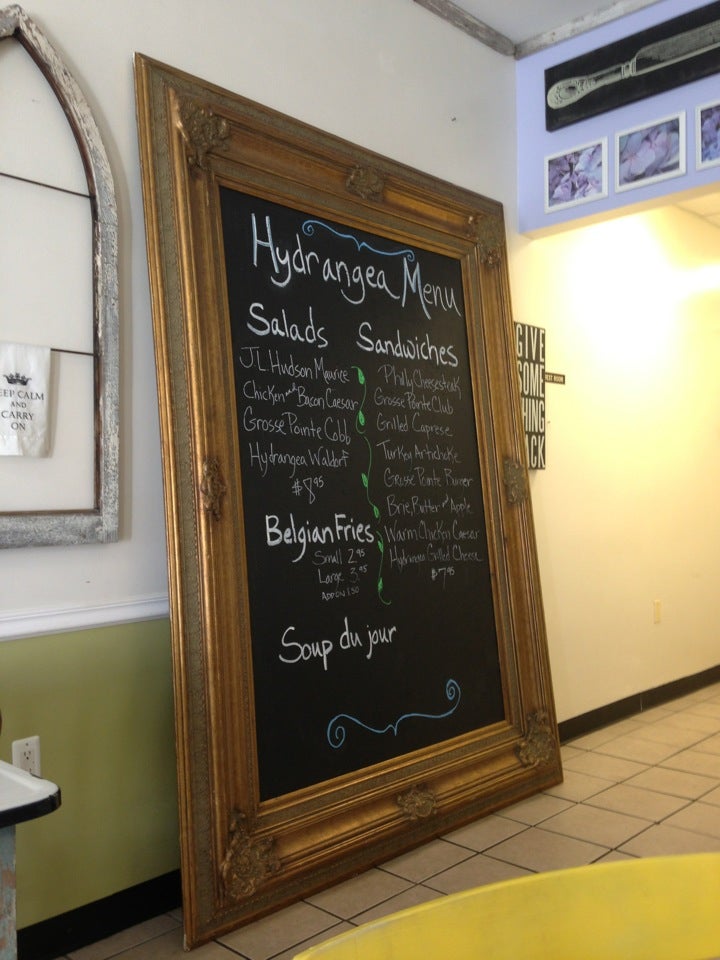 Hydrangea Menu
Salads
JL Hudson Maurice
Chicken and Bacon Caesar
Grosse Pointe Cobb
Hydrangea Waldorf
$8.95
Belgian Fries
Small 2.95
Large 3.95
ADD ON 1.50
Soup du jour
Sandwiches
Philly Cheesesteak
Grosse Pointe Club
Grilled Caprese
Turkey Artichoke
Grosse Pointe Burger
Brie, Butter and Apple
Warm Chicken Caesar
Hydrangea Grilled Cheese
$7.95
EEP CALM
AND
CARRY
ON
GIVE
SOME
HING
ACK
REST ROOM